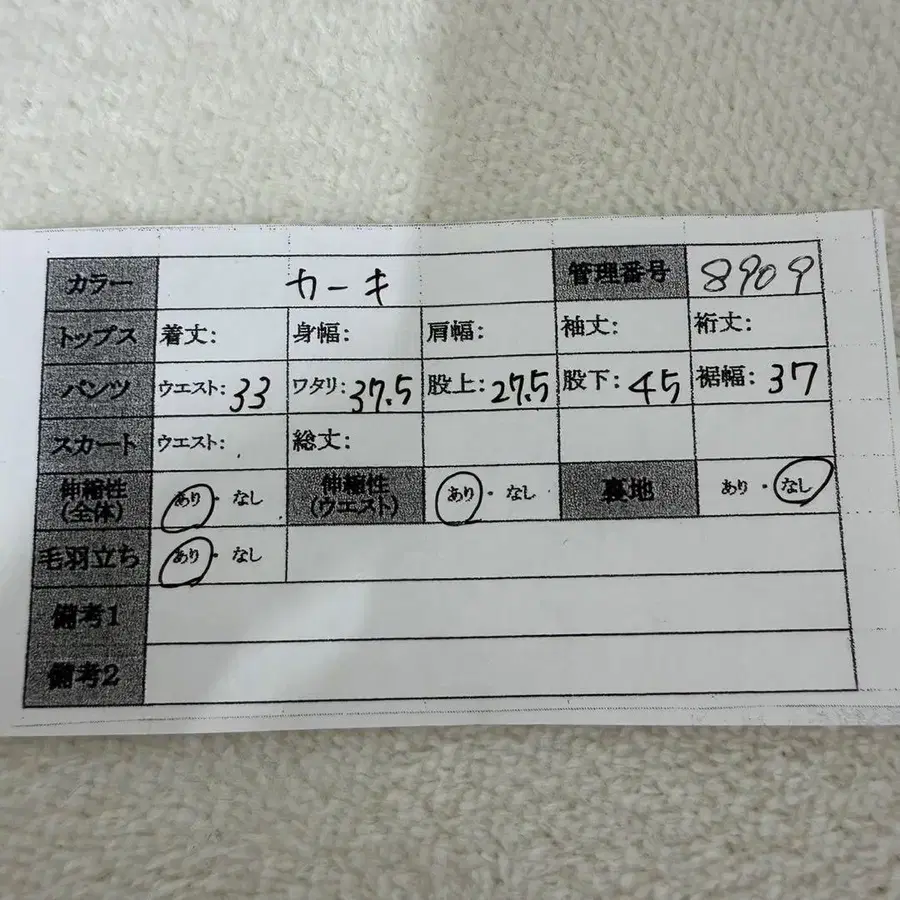 カラー カーキ 管理番号 8909
トップス 着丈: 身幅: 肩幅: 袖丈: 裄丈:
パンツ ウエスト: 33 ワタリ: 37.5 股上: 27.5 股下: 45 裾幅: 37
スカート ウエスト: 総丈:
伸縮性(全体) あり・なし 伸縮性(ウエスト) あり・なし 裏地 あり・なし
毛羽立ち あり・なし
備考1
備考2